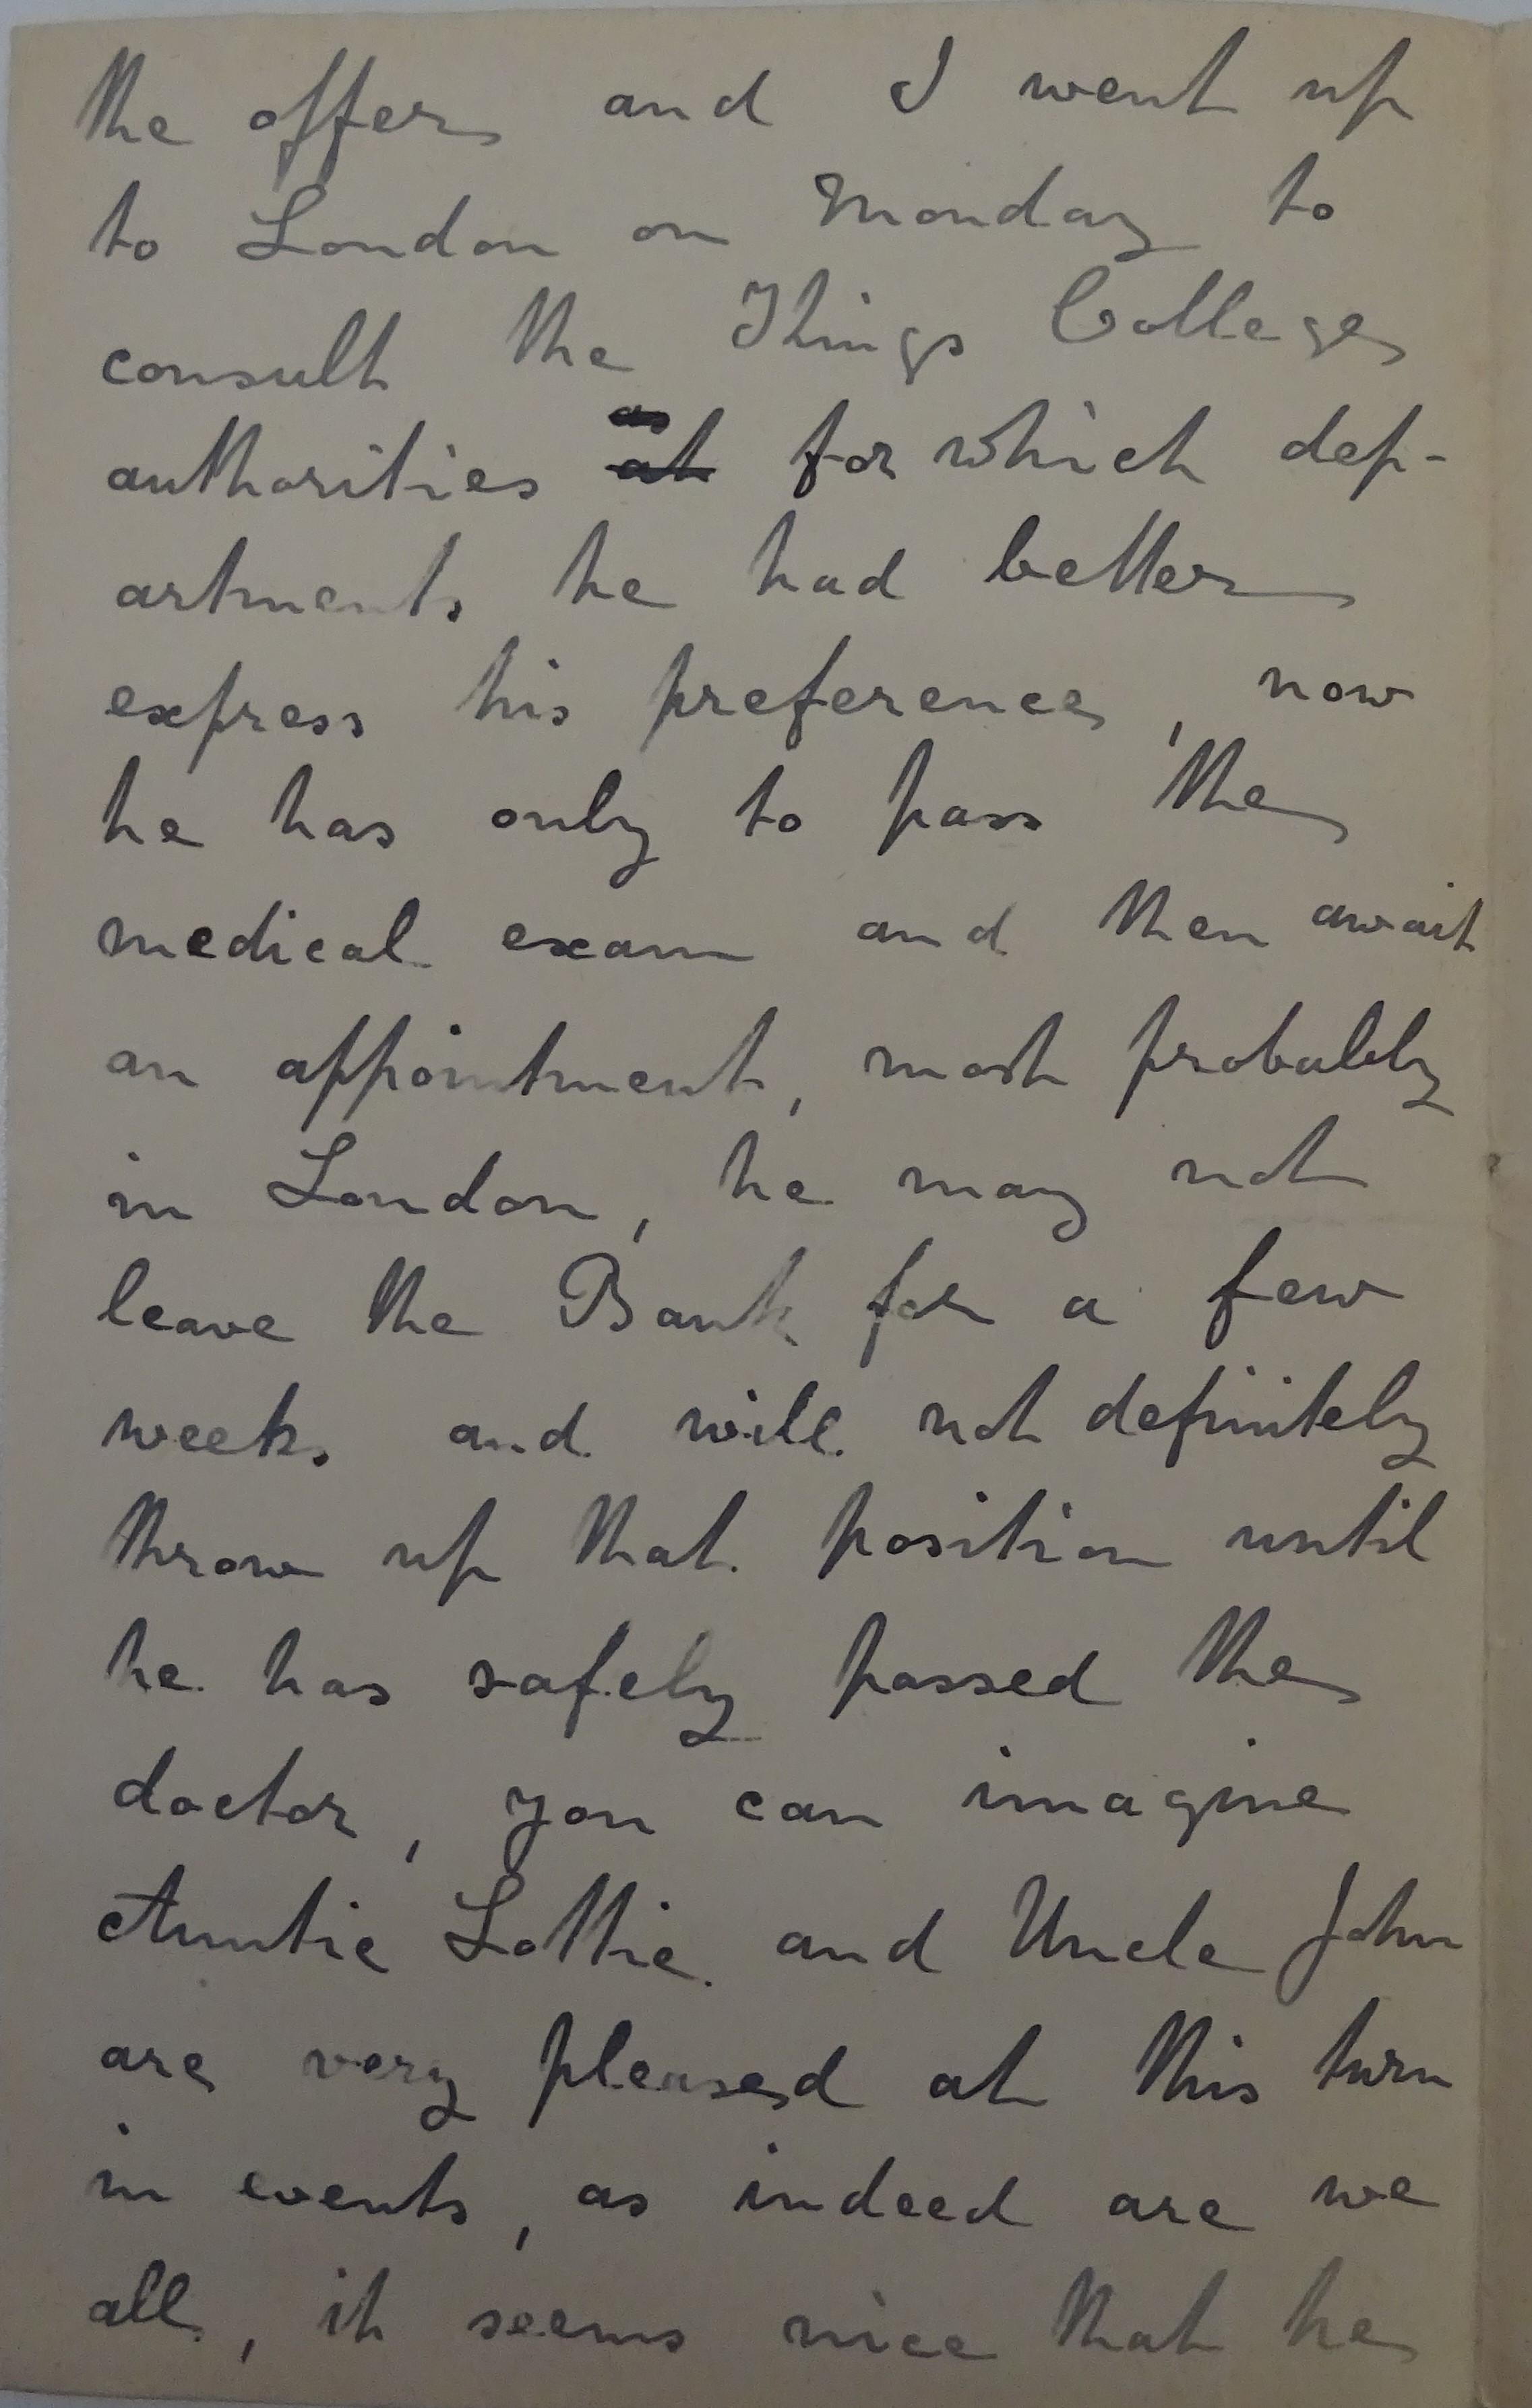 the offer and I went up
to London on Monday to
consult the Kings College
authorities as at for which dep-
artments he had better
express his preference, now
he has only to pass the
medical exam and then await
an appointment, most probably
in London, he may not
leave the Bank for a few
weeks and will not definitely
throw up that position until
he has safely passed the
doctor, you can imagine
Auntie Lottie and Uncle John
are very pleased at this turn
in events, as indeed are we
all, it seems nice that he